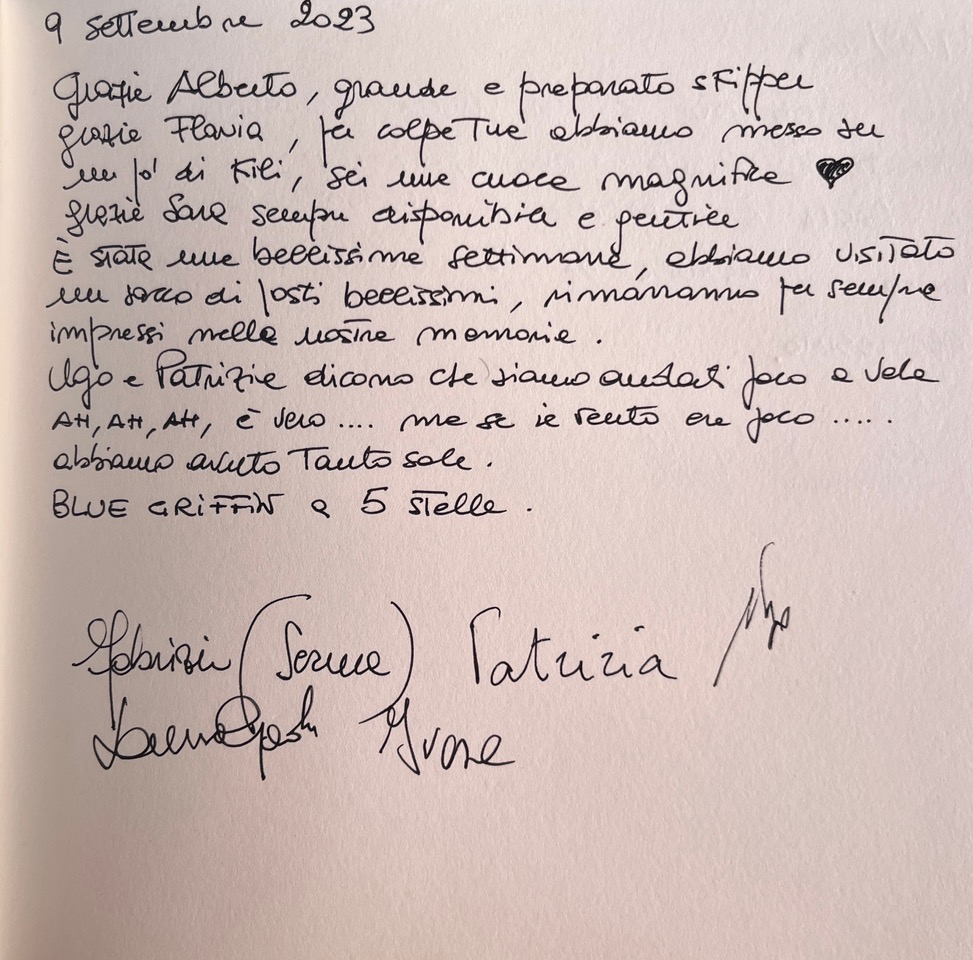 9 settembre 2023
Grazie Alberto, grande e preparato skipper
grazie Flavia, per colpa Tua abbiamo messo su
un po' di Kili, sei una cuoca magnifica ♥
grazie Sara sempre disponibile e gentile
È stata una bellissima settimana, abbiamo visitato
un sacco di posti bellissimi, rimarranno per sempre
impressi nelle nostre memorie.
Ugo e Patrizia dicono che siamo andati poco a vela
AH, AH, AH, è vero .... ma se il vento era poco .....
abbiamo avuto Tanto sole.
BLUE GRIFFIN a 5 stelle.
Patrizia
Ivone